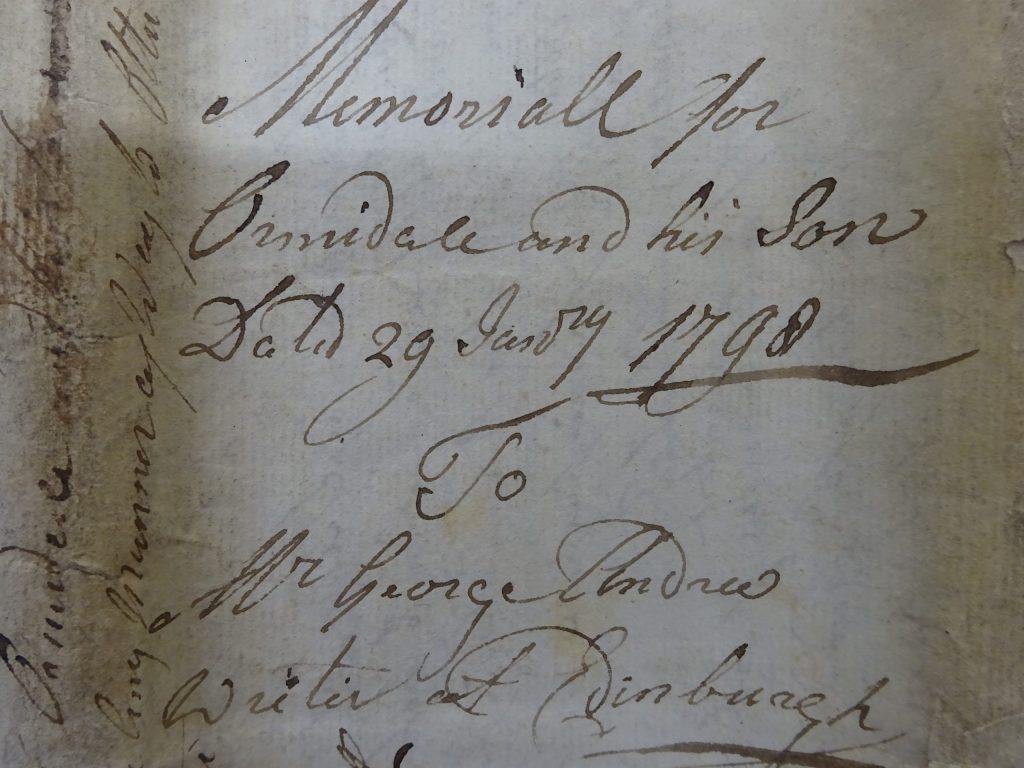 Memoriall for
Ormidale and his Son
Dated 29 Janry 1798
To
Mr George Andrew
Writer at Edinburgh